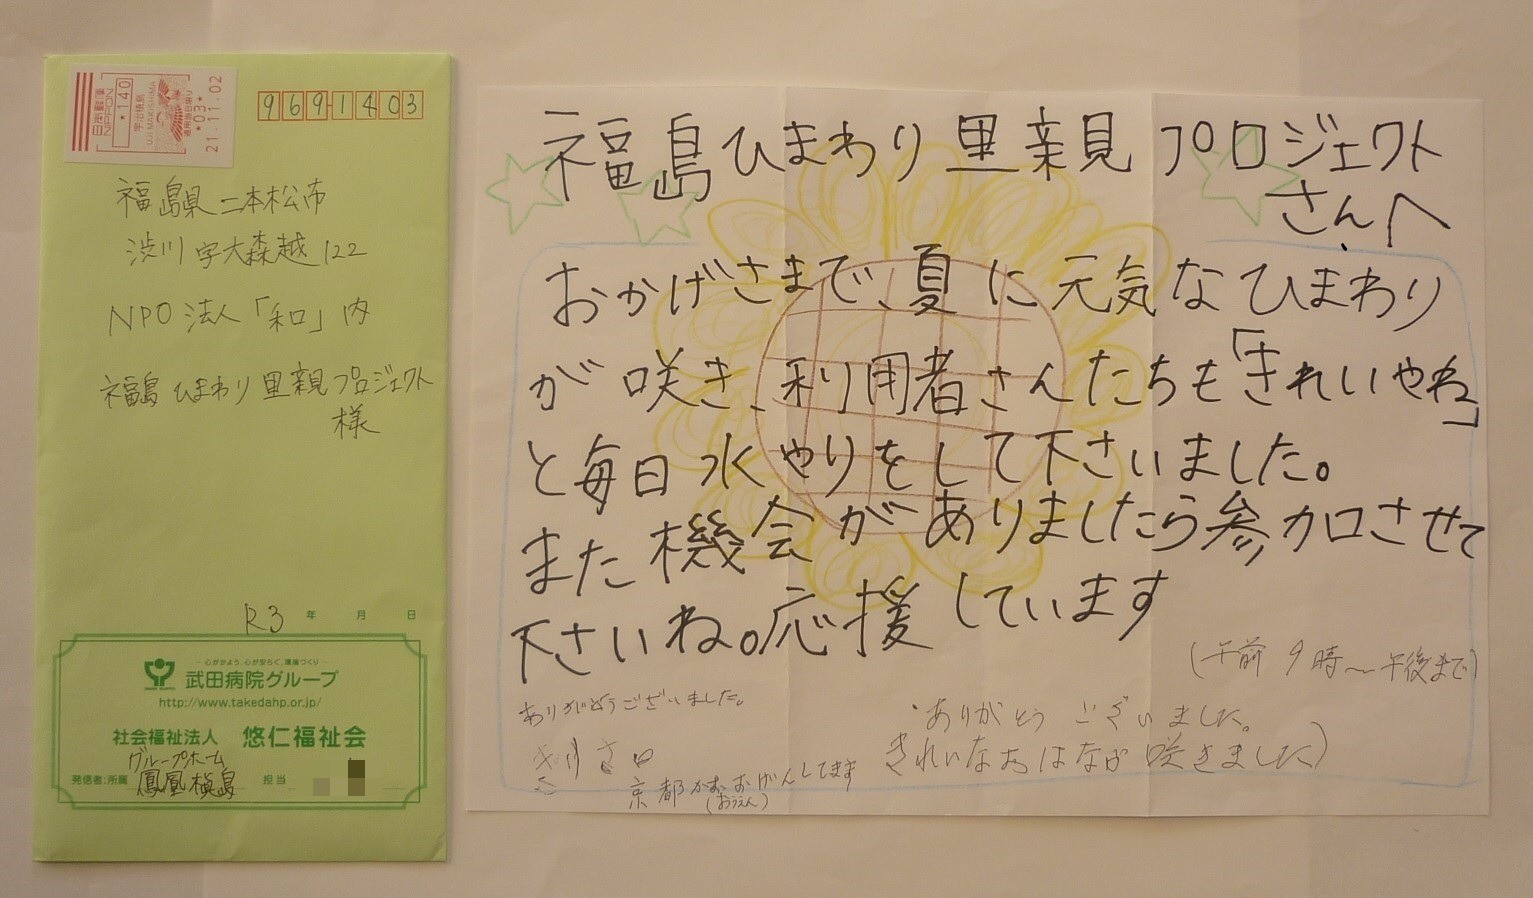 日本郵便
NIPPON
*140
宇治槇島
UJI MAKISHIMA
*03*
21.11.02
9691403
福島県二本松市
渋川字大森越122
NPO法人「和」内
福島ひまわり里親プロジェクト
様
R3 年 月 日
武田病院グループ
http://www.takedahp.or.jp/
社会福祉法人 悠仁福祉会
グループホーム
発信者:所属 鳳凰槇島 担当
福島ひまわり里親プロジェクト
さんへ
おかげさまで、夏に元気なひまわり
が咲き、利用者さんたちも「きれいやね」
と毎日水やりをして下さいました。
また機会がありましたら参加させて
下さいね。応援しています
(午前9時〜午後まで)
ありがとうございました。
ありがとうございました。
きれいなおはなが咲きました)
京都からおおげんしてます
(おうえん)